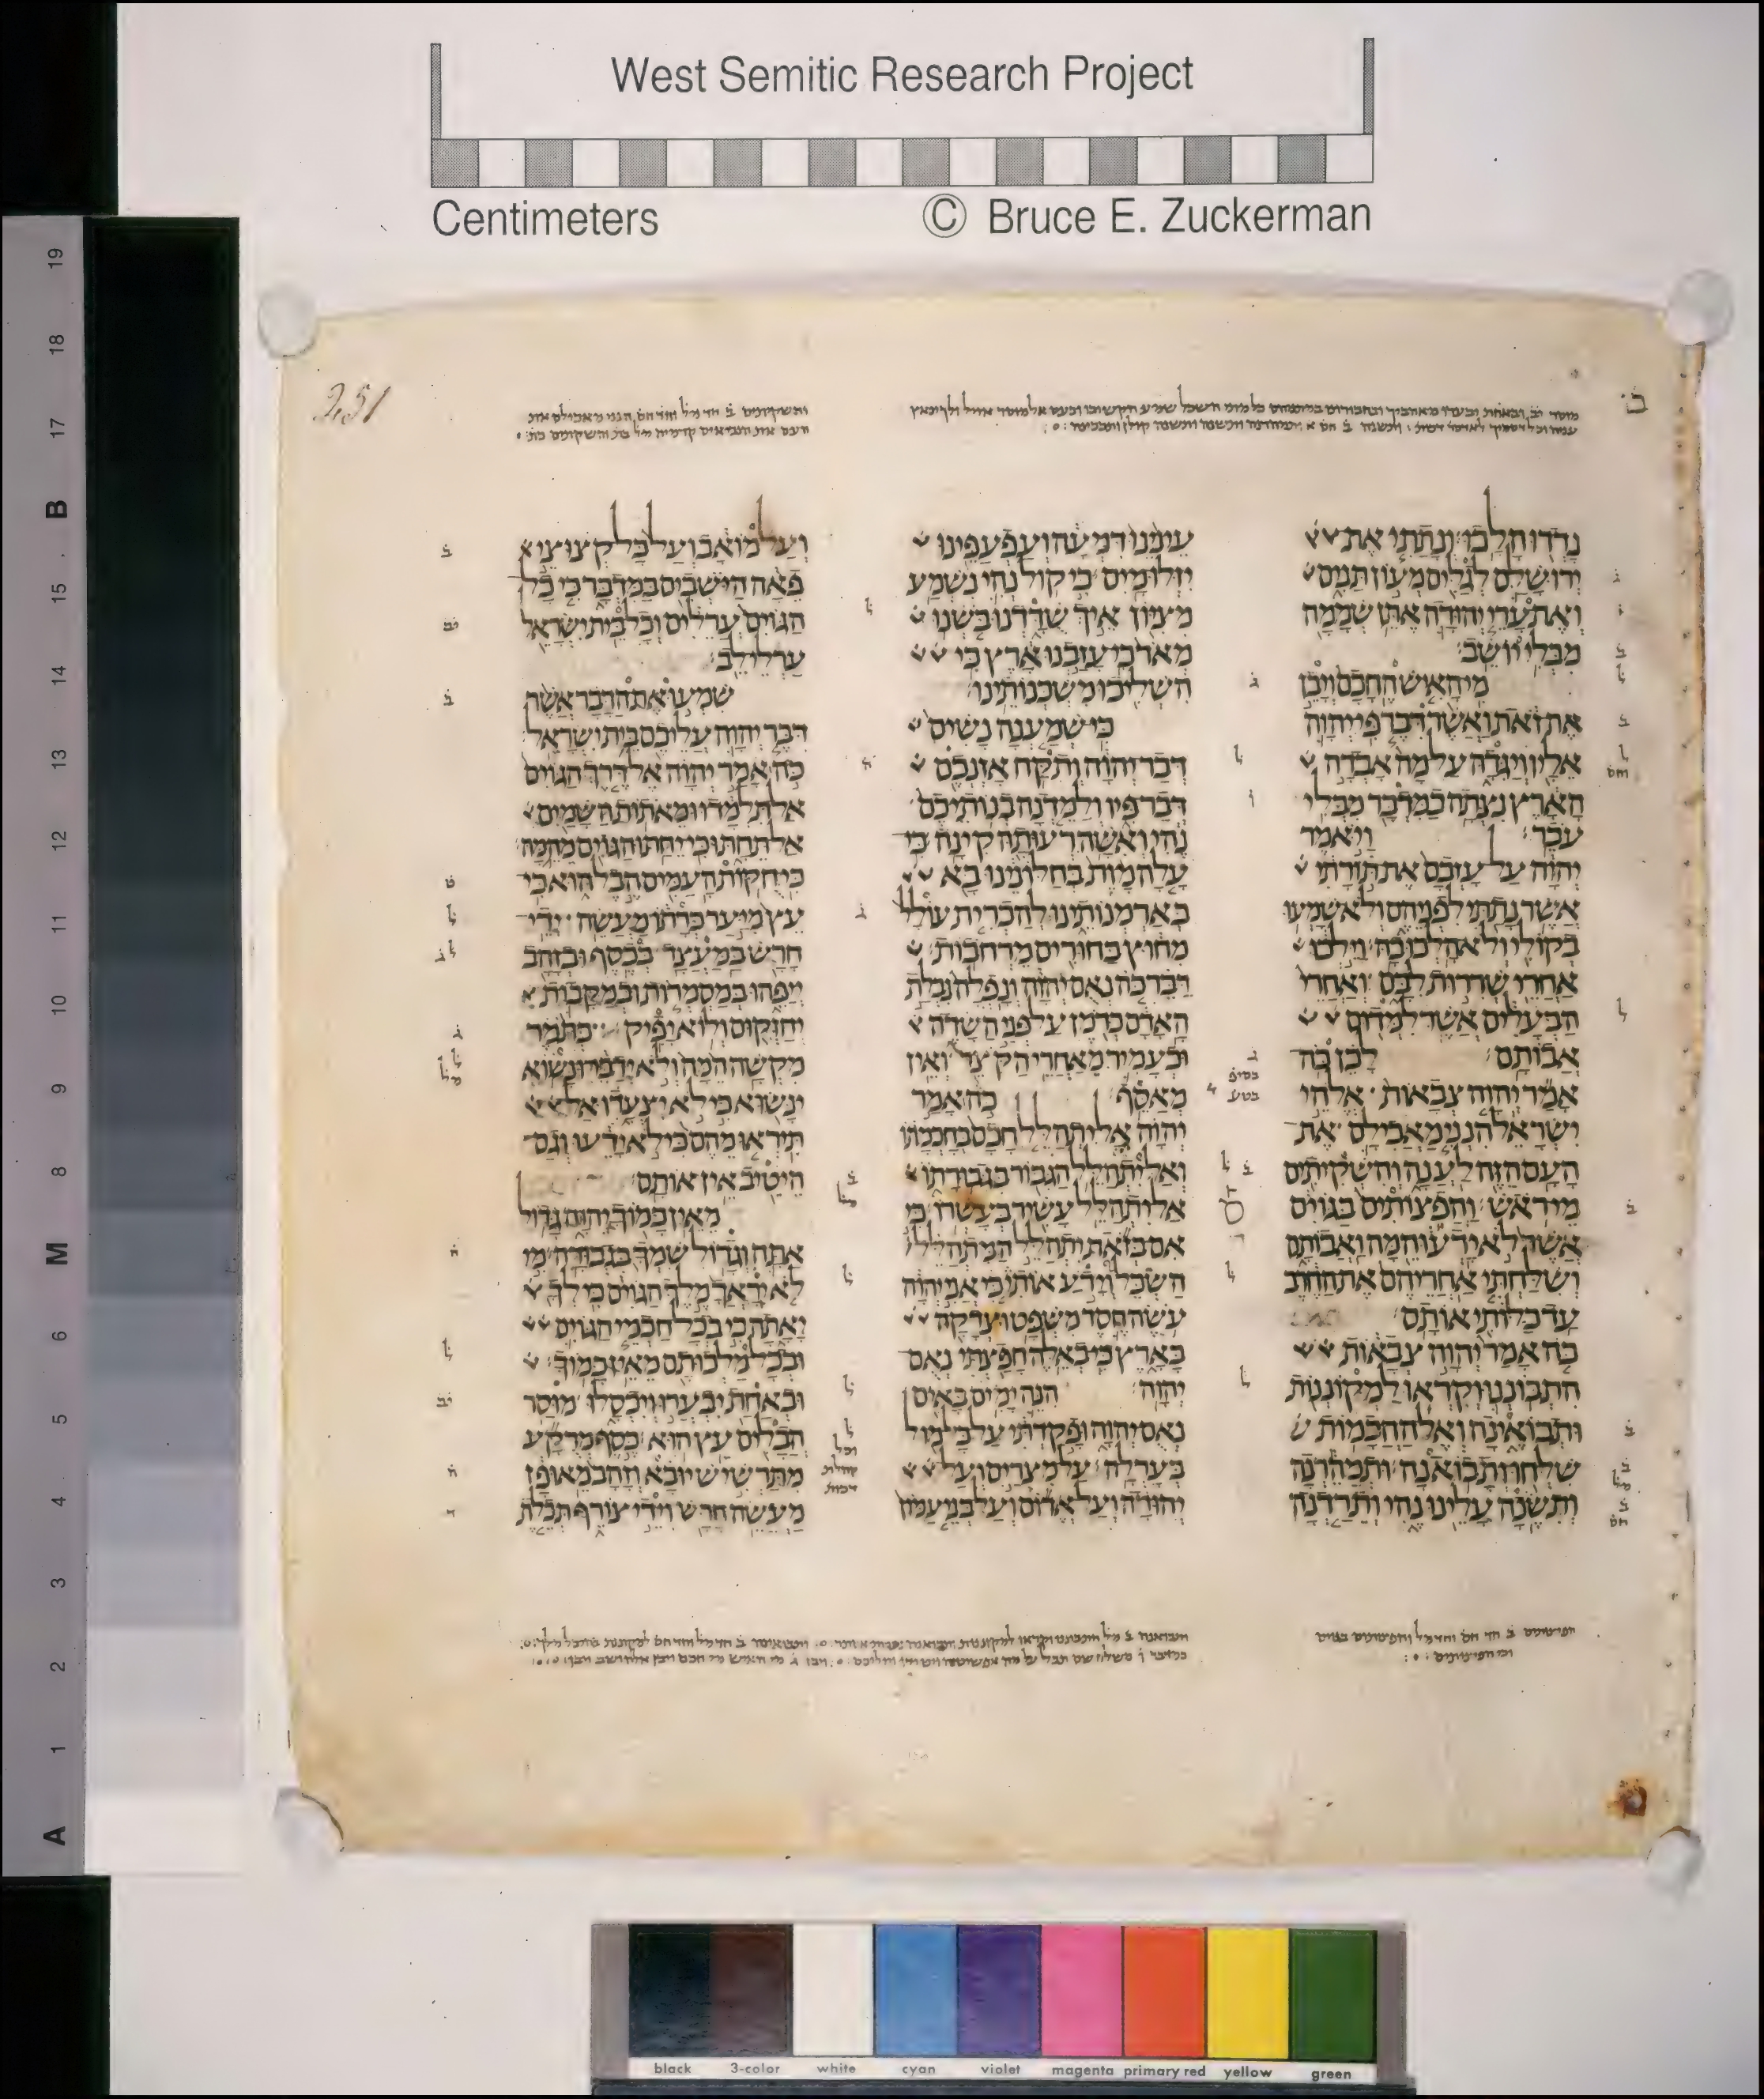 West Semitic Research Project
Centimeters © Bruce E. Zuckerman
251
נדדו הלכו ונתתי את
ירושלם לגלים מעון תנים
ואת ערי יהודה אתן שממה
מבלי יושב
מי האיש החכם ויבן
את זאת ואשר דבר פי יהוה
אליו ויגדה על מה אבדה
הארץ נצתה כמדבר מבלי
עבר ויאמר
יהוה על עזבם את תורתי
אשר נתתי לפניהם ולא שמעו
בקולי ולא הלכו בה וילכו
אחרי שררות לבם ואחרי
הבעלים אשר למדום
אבותם לכן כה
אמר יהוה צבאות אלהי
ישראל הנני מאכילם את
העם הזה לענה והשקיתים
מי ראש והפצותים בגוים
אשר לא ידעו המה ואבותם
ושלחתי אחריהם את החרב
עד כלותי אותם
כה אמר יהוה צבאות
התבוננו וקראו למקוננות
ותבואינה ואל החכמות
שלחו ותבואנה ותמהרנה
ותשנה עלינו נהי ותרדנה
עינינו דמעה ועפעפינו
יזלו מים כי קול נהי נשמע
מציון איך שדדנו בשנו
מאד כי עזבנו ארץ כי
השליכו משכנותינו
כי שמענה נשים
דבר יהוה ותקח אזנכם
דבר פיו ולמדנה בנותיכם
נהי ואשה רעותה קינה כי
עלה מות בחלונינו בא
בארמנותינו להכרית עולל
מחוץ בחורים מרחבות
דבר כה נאם יהוה ונפלה נבלת
האדם כדמן על פני השדה
וכעמיר מאחרי הקצר ואין
מאסף כה אמר
יהוה אל יתהלל חכם בחכמתו
ואל יתהלל הגבור בגבורתו
אל יתהלל עשיר בעשרו כי
אם בזאת יתהלל המתהלל
השכל וידע אותי כי אני יהוה
עשה חסד משפט וצדקה
בארץ כי באלה חפצתי נאם
יהוה הנה ימים באים
נאם יהוה ופקדתי על כל מול
בערלה על מצרים ועל
יהודה ועל אדום ועל בני עמון
ועל מואב ועל כל קצוצי
פאה הישבים במדבר כי כל
הגוים ערלים וכל בית ישראל
ערלי לב
שמעו את הדבר אשר
דבר יהוה עליכם בית ישראל
כה אמר יהוה אל דרך הגוים
אל תלמדו ומאתות השמים
אל תחתו כי יחתו הגוים מהמה
כי חקות העמים הבל הוא כי
עץ מיער כרתו מעשה ידי
חרש במעצד בכסף ובזהב
ייפהו במסמרות ובמקבות
יחזקום ולוא יפיק כתמר
מקשה המה ולא ידברו נשוא
ינשוא כי לא יצעדו אל
תיראו מהם כי לא ירעו וגם
היטיב אין אותם
מאין כמוך יהוה גדול
אתה וגדול שמך בגבורה מי
לא יראך מלך הגוים כי לך
יאתה כי בכל חכמי הגוים
ובכל מלכותם מאין כמוך
ובאחת יבערו ויכסלו מוסר
הבלים עץ הוא כסף מרקע
מתרשיש יובא וזהב מאופז
מעשה חרש וידי צורף תכלת
black 3-color white cyan violet magenta primary red yellow green
19
18
17
B
15
14
13
12
11
10
9
8
M
6
5
4
3
2
1
A